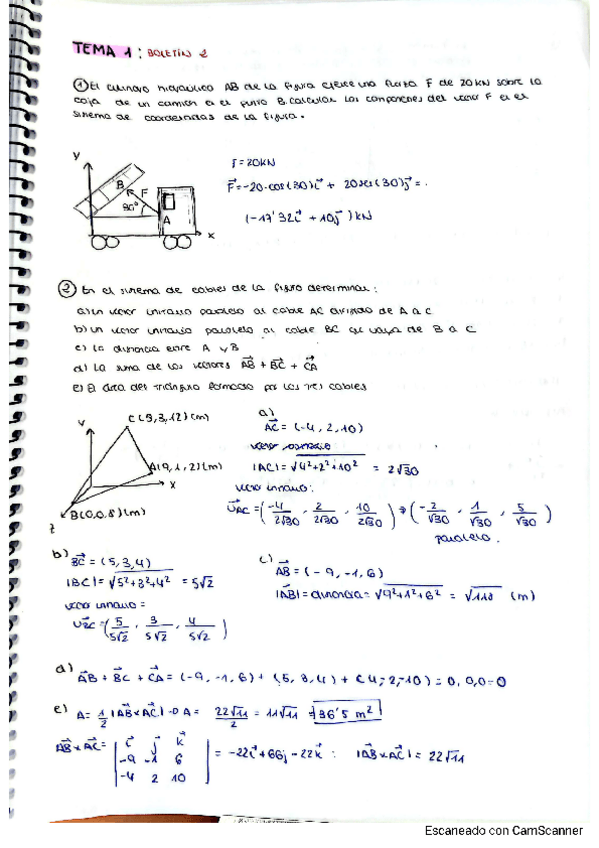 TEMA 1: BOLETÍN 2
① El cilindro hidráulico AB de la figura ejerce una fuerza F de 20kN sobre la
caja de un camión en el punto B. Calcular las componentes del vector F en el
sistema de coordenadas de la figura.
Y
B
F
30°
A
X
F=20KN
F⃗=-20·cos(30)i⃗ + 20sen(30)j⃗ =
(-17'32i⃗ + 10j⃗) KN
② En el sistema de cables de la figura determinar:
a) Un vector unitario paralelo al cable AC dirigido de A a C
b) Un vector unitario paralelo al cable BC que vaya de B a C
c) La distancia entre A y B
d) La suma de los vectores AB⃗ + BC⃗ + CA⃗
e) El área del triángulo formado por los tres cables
Y
C(5,3,12)(m)
A(9,1,2)(m)
X
B(0,0,8)(m)
Z
a)
AC⃗ = (-4, 2, 10)
|AC| = √4²+2²+10² = 2√30
vector unitario:
U⃗AC = (-4/2√30, 2/2√30, 10/2√30) → (-2/√30, 1/√30, 5/√30)
paralelo.
b) BC⃗ = (5,3,4)
|BC| = √5²+3²+4² = 5√2
vector unitario =
U⃗BC = (5/5√2, 3/5√2, 4/5√2)
c)
AB⃗ = (-9, -1, 6)
|AB| = distancia = √9²+1²+6² = √118 (m)
d) AB⃗ + BC⃗ + CA⃗ = (-9, -1, 6) + (5, 3, 4) + (4, -2, -10) = 0, 0, 0 = 0
e) A = 1/2 |AB⃗×AC⃗| → A = 22√11/2 = 11√11 = 36'5 m²
AB⃗×AC⃗ = | i⃗ j⃗ k⃗
-9 -1 6
-4 2 10 | = -22i⃗ + 66j - 22k⃗ : |AB⃗×AC⃗| = 22√11
Escaneado con CamScanner